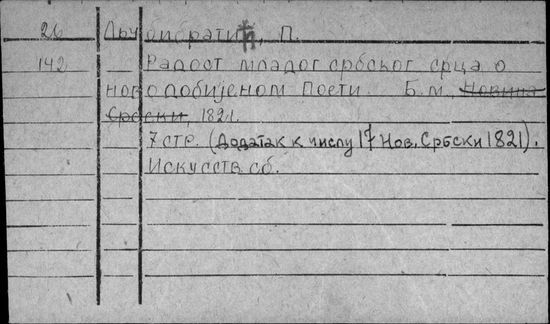 26 Другоибратић, П.
142 Радост младог србског срца о
новодобијеном Поети. Б.м., Новина
Србски, 1821.
7 стр. (Додатак к числу 17 Нов. Србски 1821).
Искусств. сб.